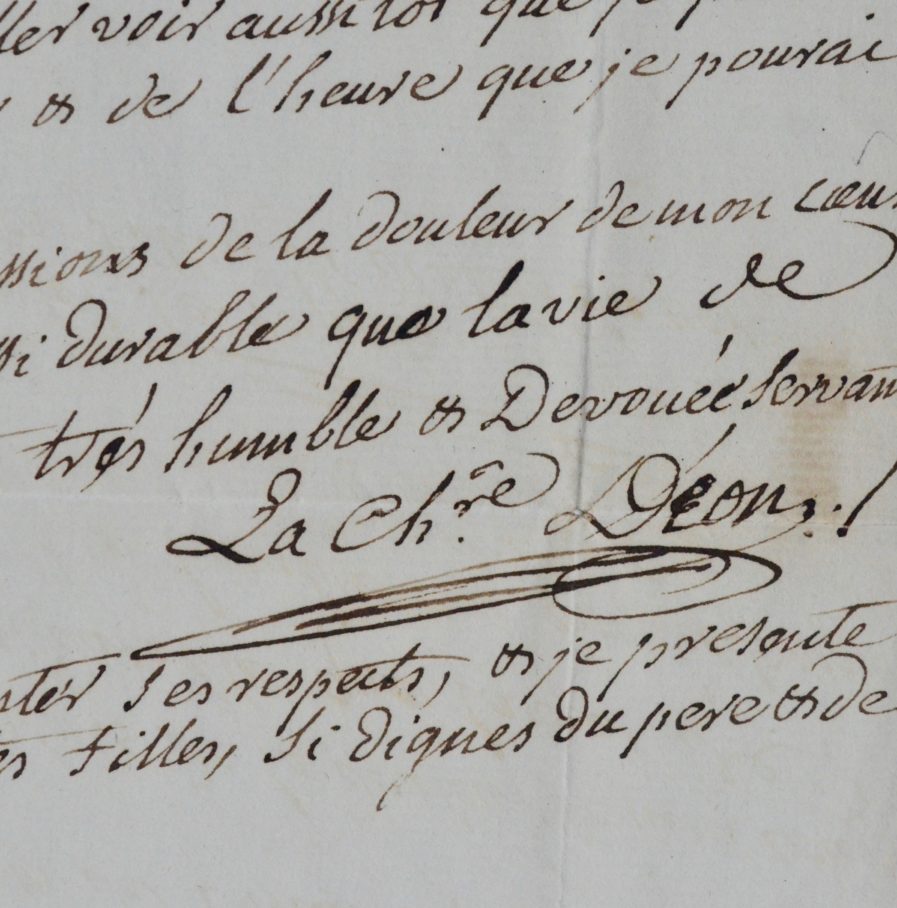 ller voir aussi tot que je
& de l'heure que je pourai
ssions de la douleur de mon cœur
si durable que la vie de
trés humble & Devouée servan
La Ch.re Déon
nter ses respects, & je presente
es filles, si dignes du pere & de